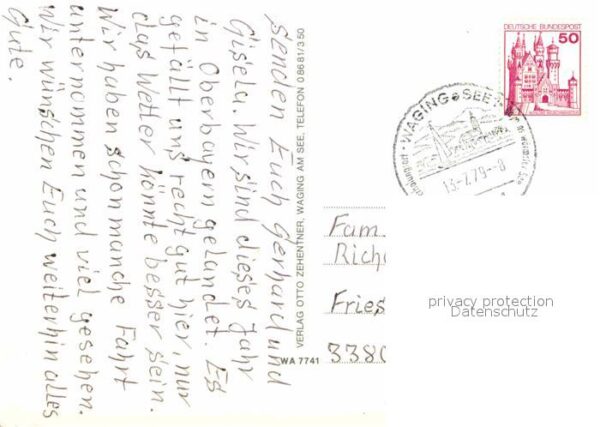 senden Euch Gerhard und
Gisela. Wir sind dieses Jahr
in Oberbayern gelandet. Es
gefällt uns recht gut hier, nur
das Wetter könnte besser sein.
Wir haben schon manche Fahrt
unternommen und viel gesehen.
Wir wünschen Euch weiterhin alles
Gute.
VERLAG OTTO ZEHENTNER, WAGING AM SEE, TELEFON 08681/350
WA 7741
DEUTSCHE BUNDESPOST
50
WAGING SEE
13.-7.79--8
Fam.
Rich
Fries
3380
privacy protection
Datenschutz